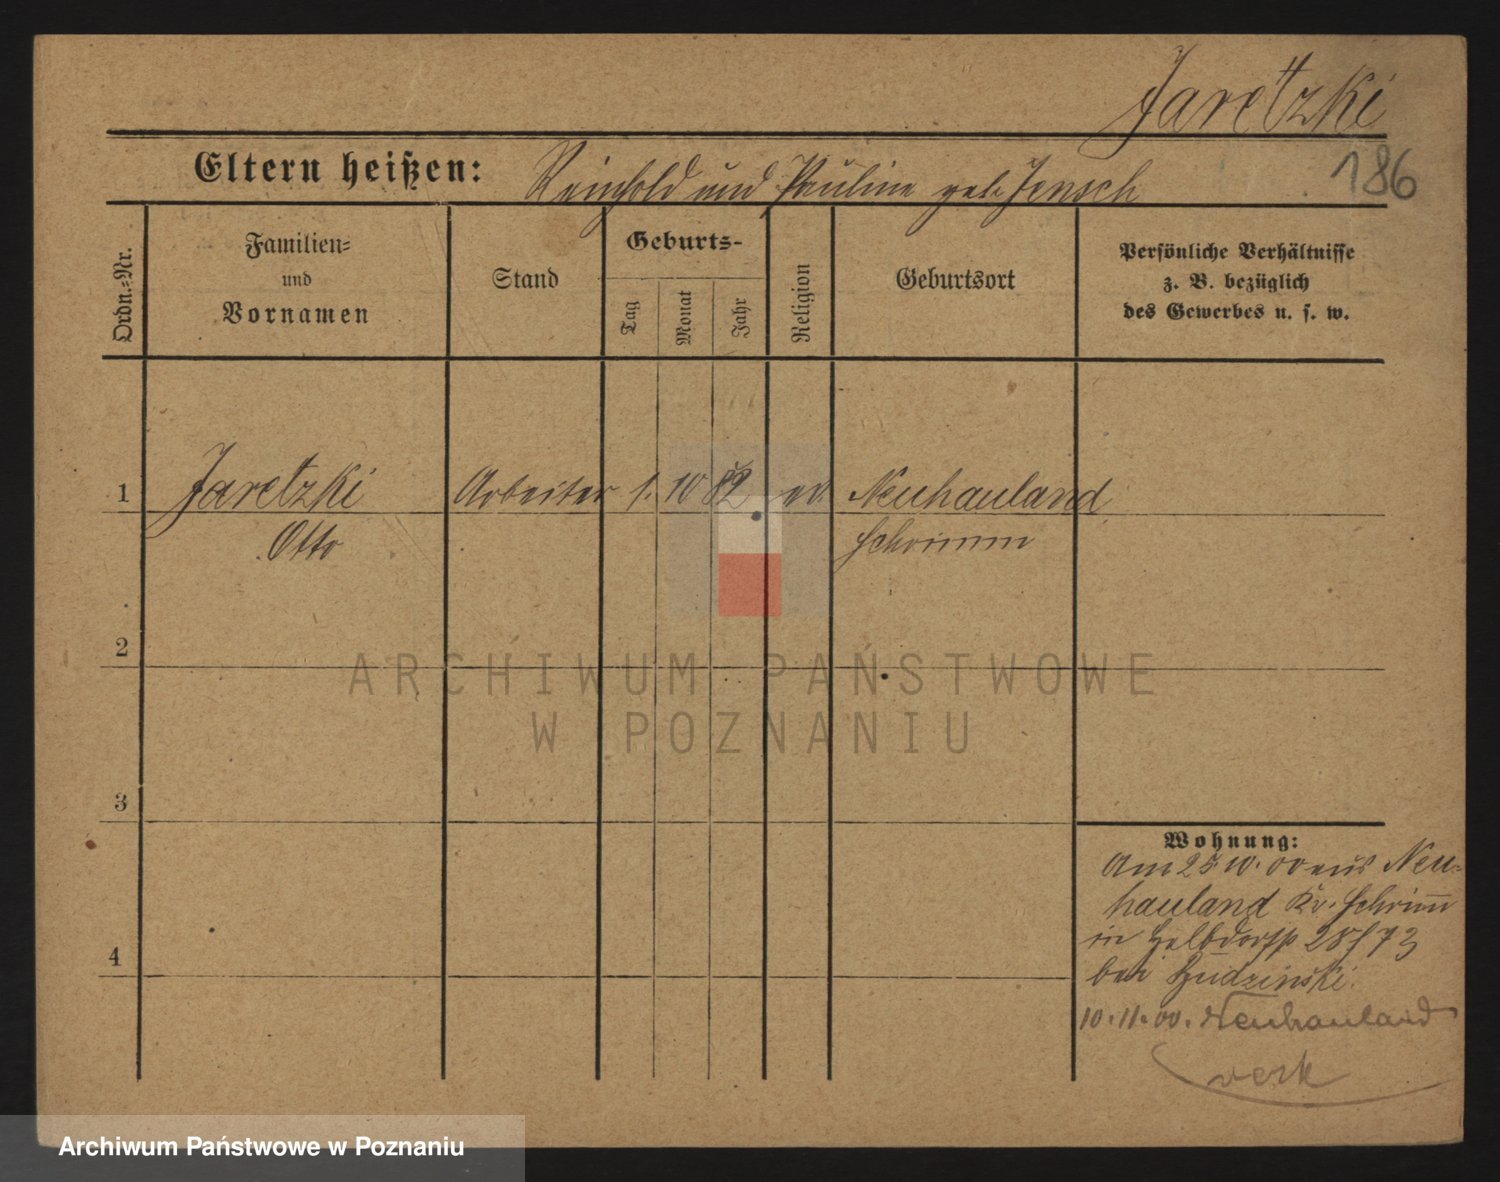 Jaretzki
186
Eltern heißen: Reinhold und Pauline geb. Jensch
Ordn.-Nr.
Familien-
und
Vornamen
Stand
Geburts-
Tag
Monat
Jahr
Religion
Geburtsort
Persönliche Verhältnisse
z. B. bezüglich
des Gewerbes u. s. w.
1 Jaretzki Arbeiter 1. 10 82 ev. Neuhauland
Otto Schrimm
2
ARCHIWUM PAŃSTWOWE
W POZNANIU
3
Wohnung:
Am 25.10.00 aus Neu-
hauland Kr. Schrimm
in
4
bei
10.11.00. Neuhauland
Archiwum Państwowe w Poznaniu